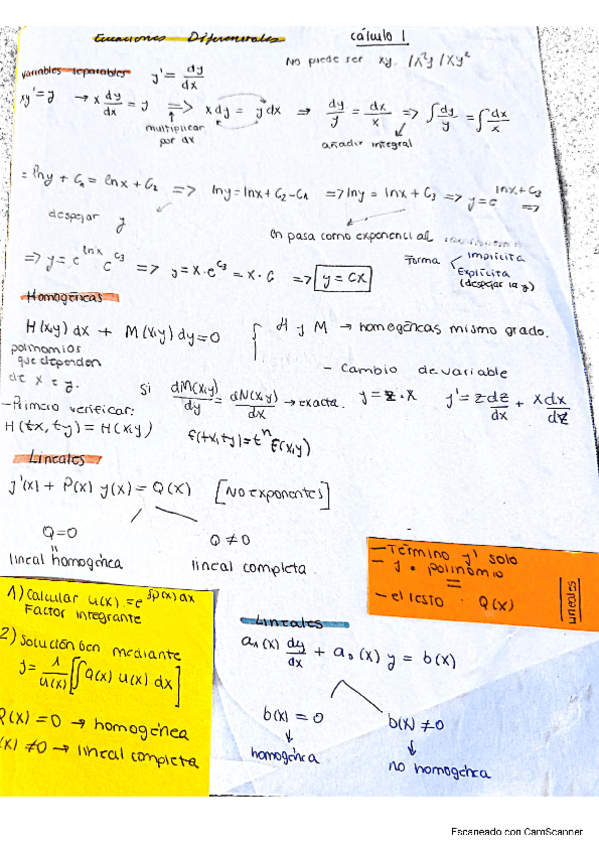 Ecuaciones Diferenciales cálculo 1
No puede ser xy. /x²y /xy²
variables separables y' = dy/dx
xy' = y → x dy/dx = y => x dy = y dx => dy/y = dx/x => ∫dy/y = ∫dx/x
multiplicar por dx
añadir integral
= ln y + C₁ = ln x + C₂ => ln y = ln x + C₂ - C₁ => ln y = ln x + C₃ => y = e^(ln x + C₃) =>
despejar y
ln pasa como exponencial al
=> y = e^(ln x) e^(C₃) => y = x · e^(C₃) = x · C => y = cx
Forma implícita
Explícita
(despejar la y)
Homogéneas
H(x,y) dx + M(x,y) dy = 0 { H y M → homogéneas mismo grado.
polinomios
que dependen
de x e y.
- Cambio de variable
Si dM(x,y)/dy = dN(x,y)/dx → exacta. y = z · x y' = z dz/dx + x dx/dz
- Primero verificar:
H(tx, ty) = H(x,y) f(tx,ty) = tⁿ f(x,y)
Lineales
y'(x) + P(x) y(x) = Q(x) [No exponentes]
Q = 0 Q ≠ 0
lineal homogénea lineal completa.
- Término y' solo
- y · polinomio
=
- el resto · Q(x)
Lineales
1) Calcular u(x) = e^(∫p(x)dx)
Factor integrante
2) Solución Gen mediante
y = 1/u(x) [∫Q(x) u(x) dx]
Q(x) = 0 → homogénea
(x) ≠ 0 → lineal completa
Lineales
a₁(x) dy/dx + a₀(x) y = b(x)
b(x) = 0 b(x) ≠ 0
↓ ↓
homogénea no homogénea
Escaneado con CamScanner